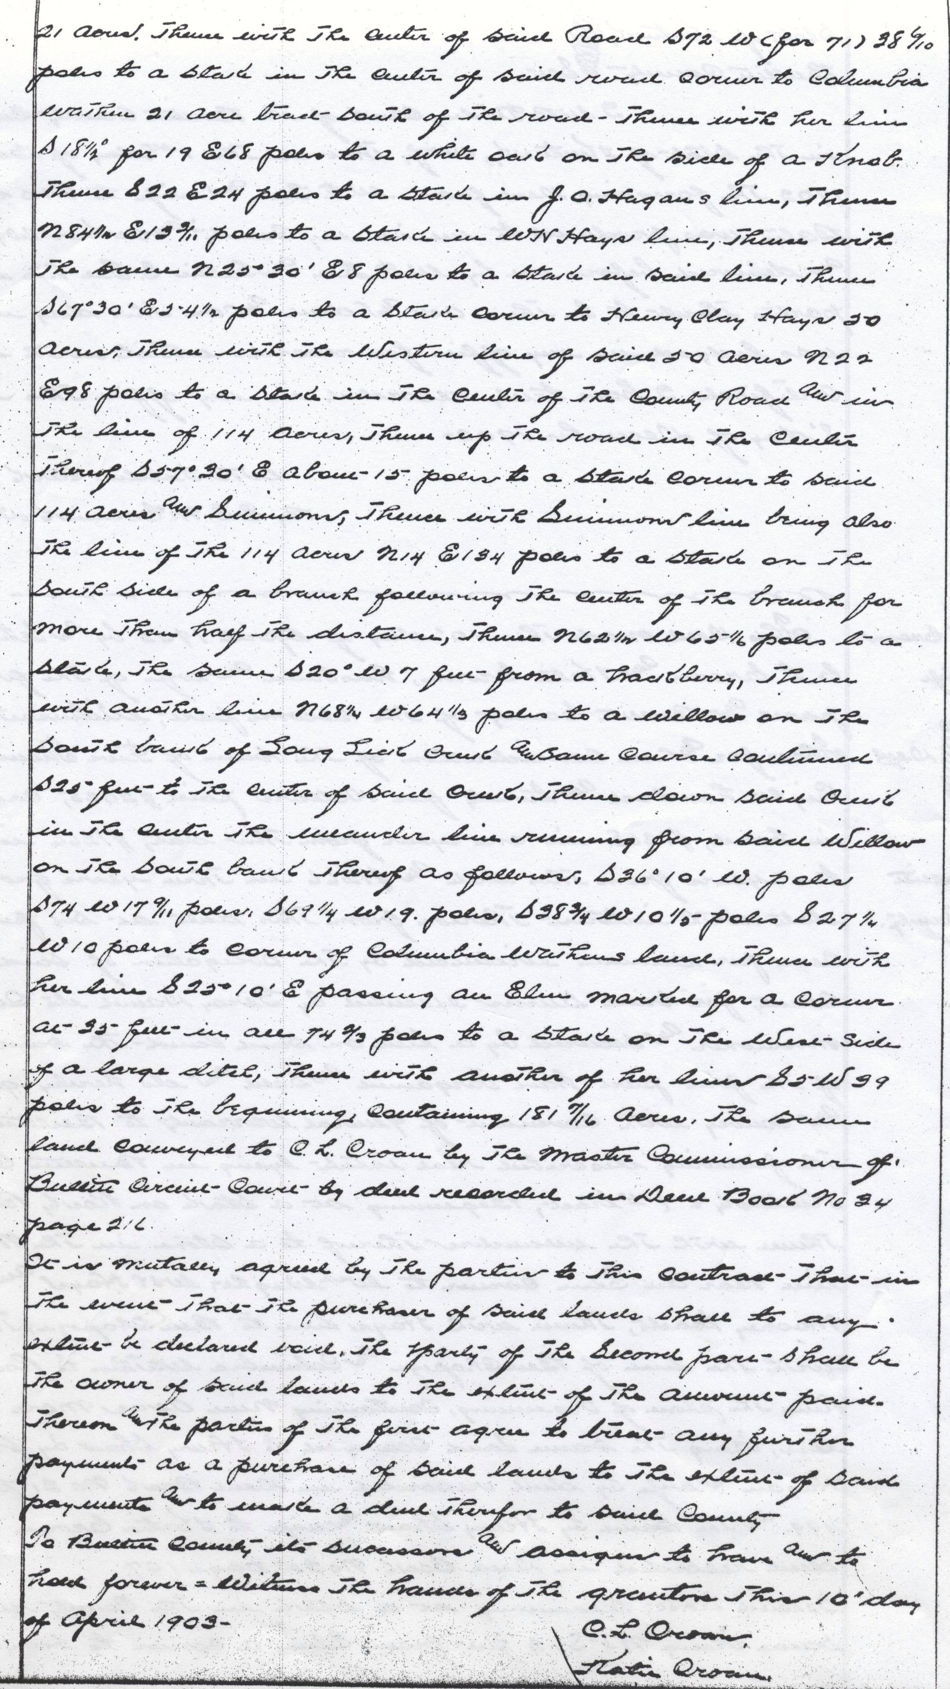 21 acres. Thence with the center of said Road S72 W (for 71) 38 6/10
poles to a stake in the center of said road corner to Columbia
Wathen 21 acre tract south of the road - thence with her line
S18½° for 19 E68 poles to a white oak on the side of a Knob.
Thence S22 E24 poles to a stake in J.O. Hagans line, Thence
N84½ E13 9/11 poles to a stake in WN Hays line, thence with
the same N25°30' E8 poles to a stake in said line, thence
S67°30' E54½ poles to a stake corner to Henry Clay Hays 50
acres, thence with the Western line of said 50 acres N22
E98 poles to a stake in the center of the County Road and in
the line of 114 acres, thence up the road in the center
thereof S57°30' E about 15 poles to a stake corner to said
114 acres and Simmons, thence with Simmons line being also
the line of the 114 acres N14 E134 poles to a stake on the
south side of a branch following the center of the branch for
more than half the distance, thence N62½ W65 1/6 poles to a
stake, the same S20° W 7 feet from a hackberry, thence
with another line N68¼ W64 1/3 poles to a willow on the
south bank of Long Lick Creek and same course continued
S25 feet to the center of said creek, thence down said creek
in the center the meander line running from said Willow
on the south bank thereof as follows, S36°10' W. poles
S74 W17 9/11 poles, S69¼ W19. poles, S38¾ W10 1/5 poles S27¼
W10 poles to corner of Columbia Wathens land, thence with
her line S25°10' E passing an Elm marked for a corner
at 35 feet in all 74 2/3 poles to a stake on the West side
of a large ditch, thence with another of her lines S5 W39
poles to the beginning, containing 181 7/16 acres. The same
land conveyed to C.L. Croan by the Master Commissioner of
Bullitt Circuit Court by deed recorded in Deed Book No 34
page 216
It is mutally agreed by the parties to this contract that in
the event that the purchaser of said lands shall to any
extent be declared void, the party of the Second part shall be
the owner of said lands to the extent of the amount paid
thereon and the parties of the first agree to treat any further
payments as a purchase of said lands to the extent of said
payments and to make a deed therefor to said County
To Bullitt County its successors and assigns to have and to
hold forever = Witness the hands of the grantors this 10' day
of April 1903 -
C.L. Croan.
Katie Croan.